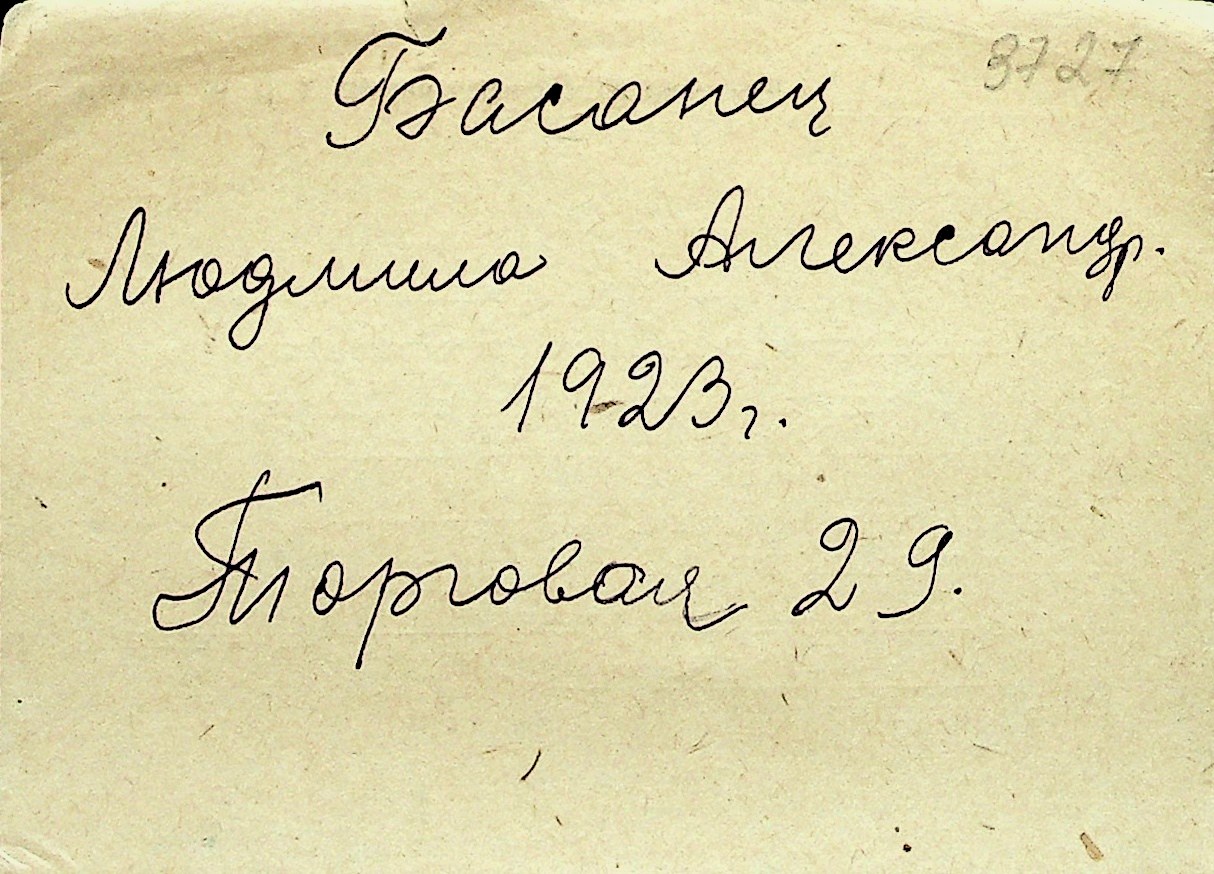 3727
Басанец
Людмила Александр.
1923г.
Торговая 29.